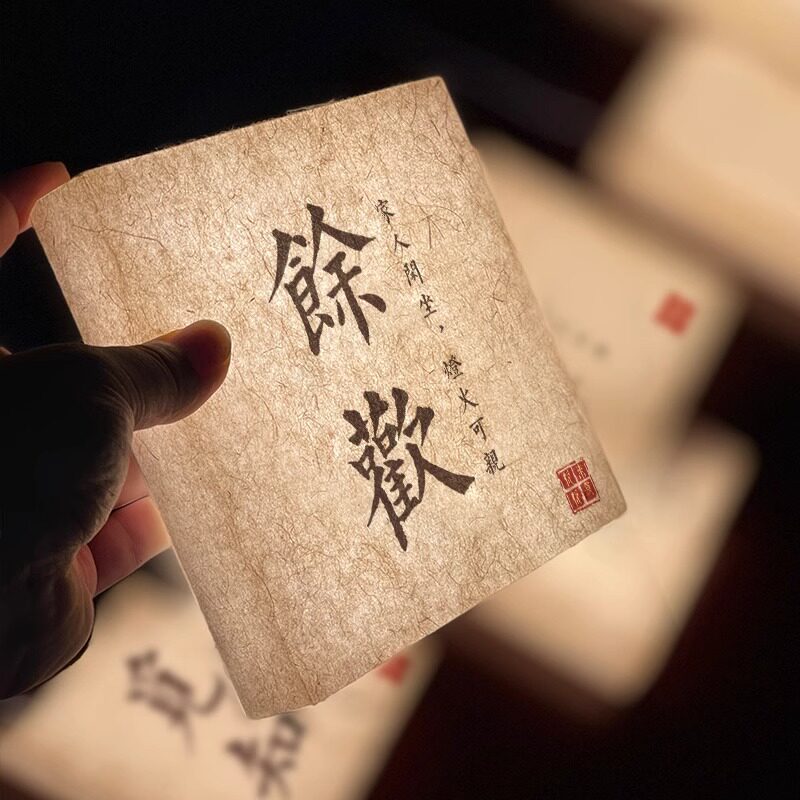 家人閑坐，燈火可親
餘歡
知